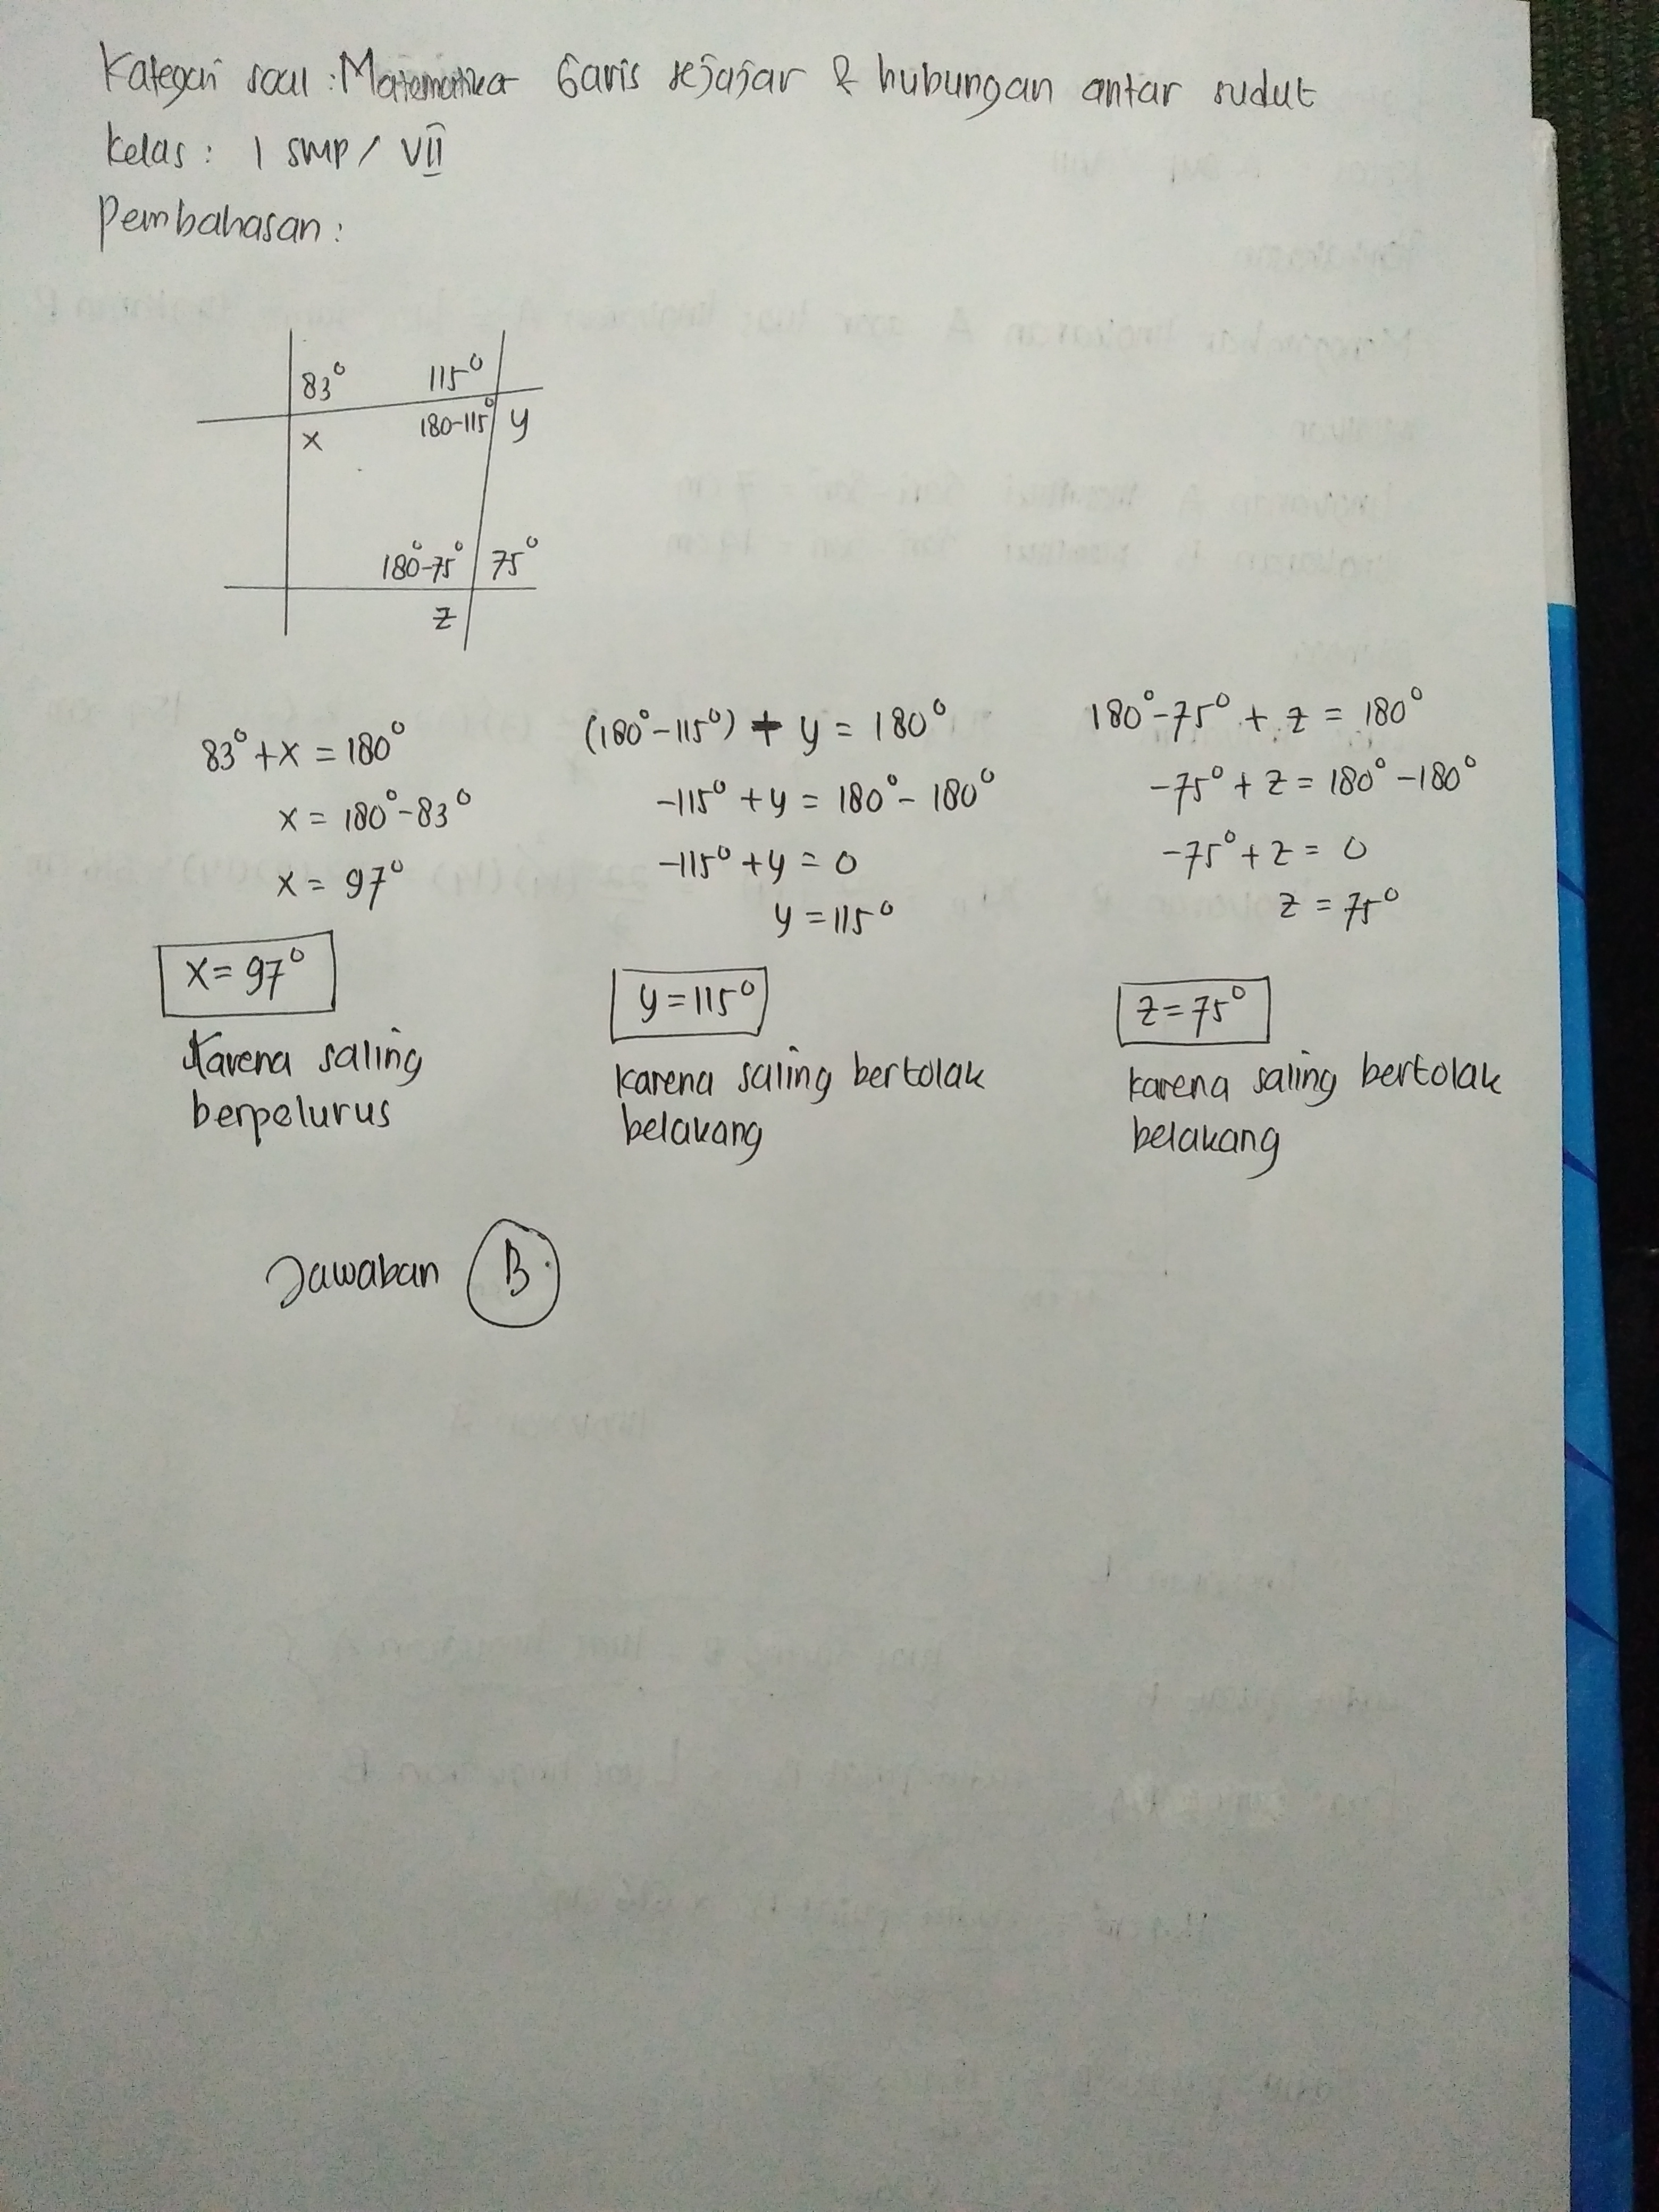 Kategori soal : Matematika Garis sejajar & hubungan antar sudut
Kelas : 1 SMP / VII
Pembahasan :
83° 115°
x 180-115° y
180°-75° 75°
z
83° + x = 180°
x = 180° - 83°
x = 97°
x = 97°
Karena saling
berpelurus
(180° - 115°) + y = 180°
-115° + y = 180° - 180°
-115° + y = 0
y = 115°
y = 115°
karena saling bertolak
belakang
180° - 75° + z = 180°
-75° + z = 180° - 180°
-75° + z = 0
z = 75°
z = 75°
karena saling bertolak
belakang
Jawaban B.